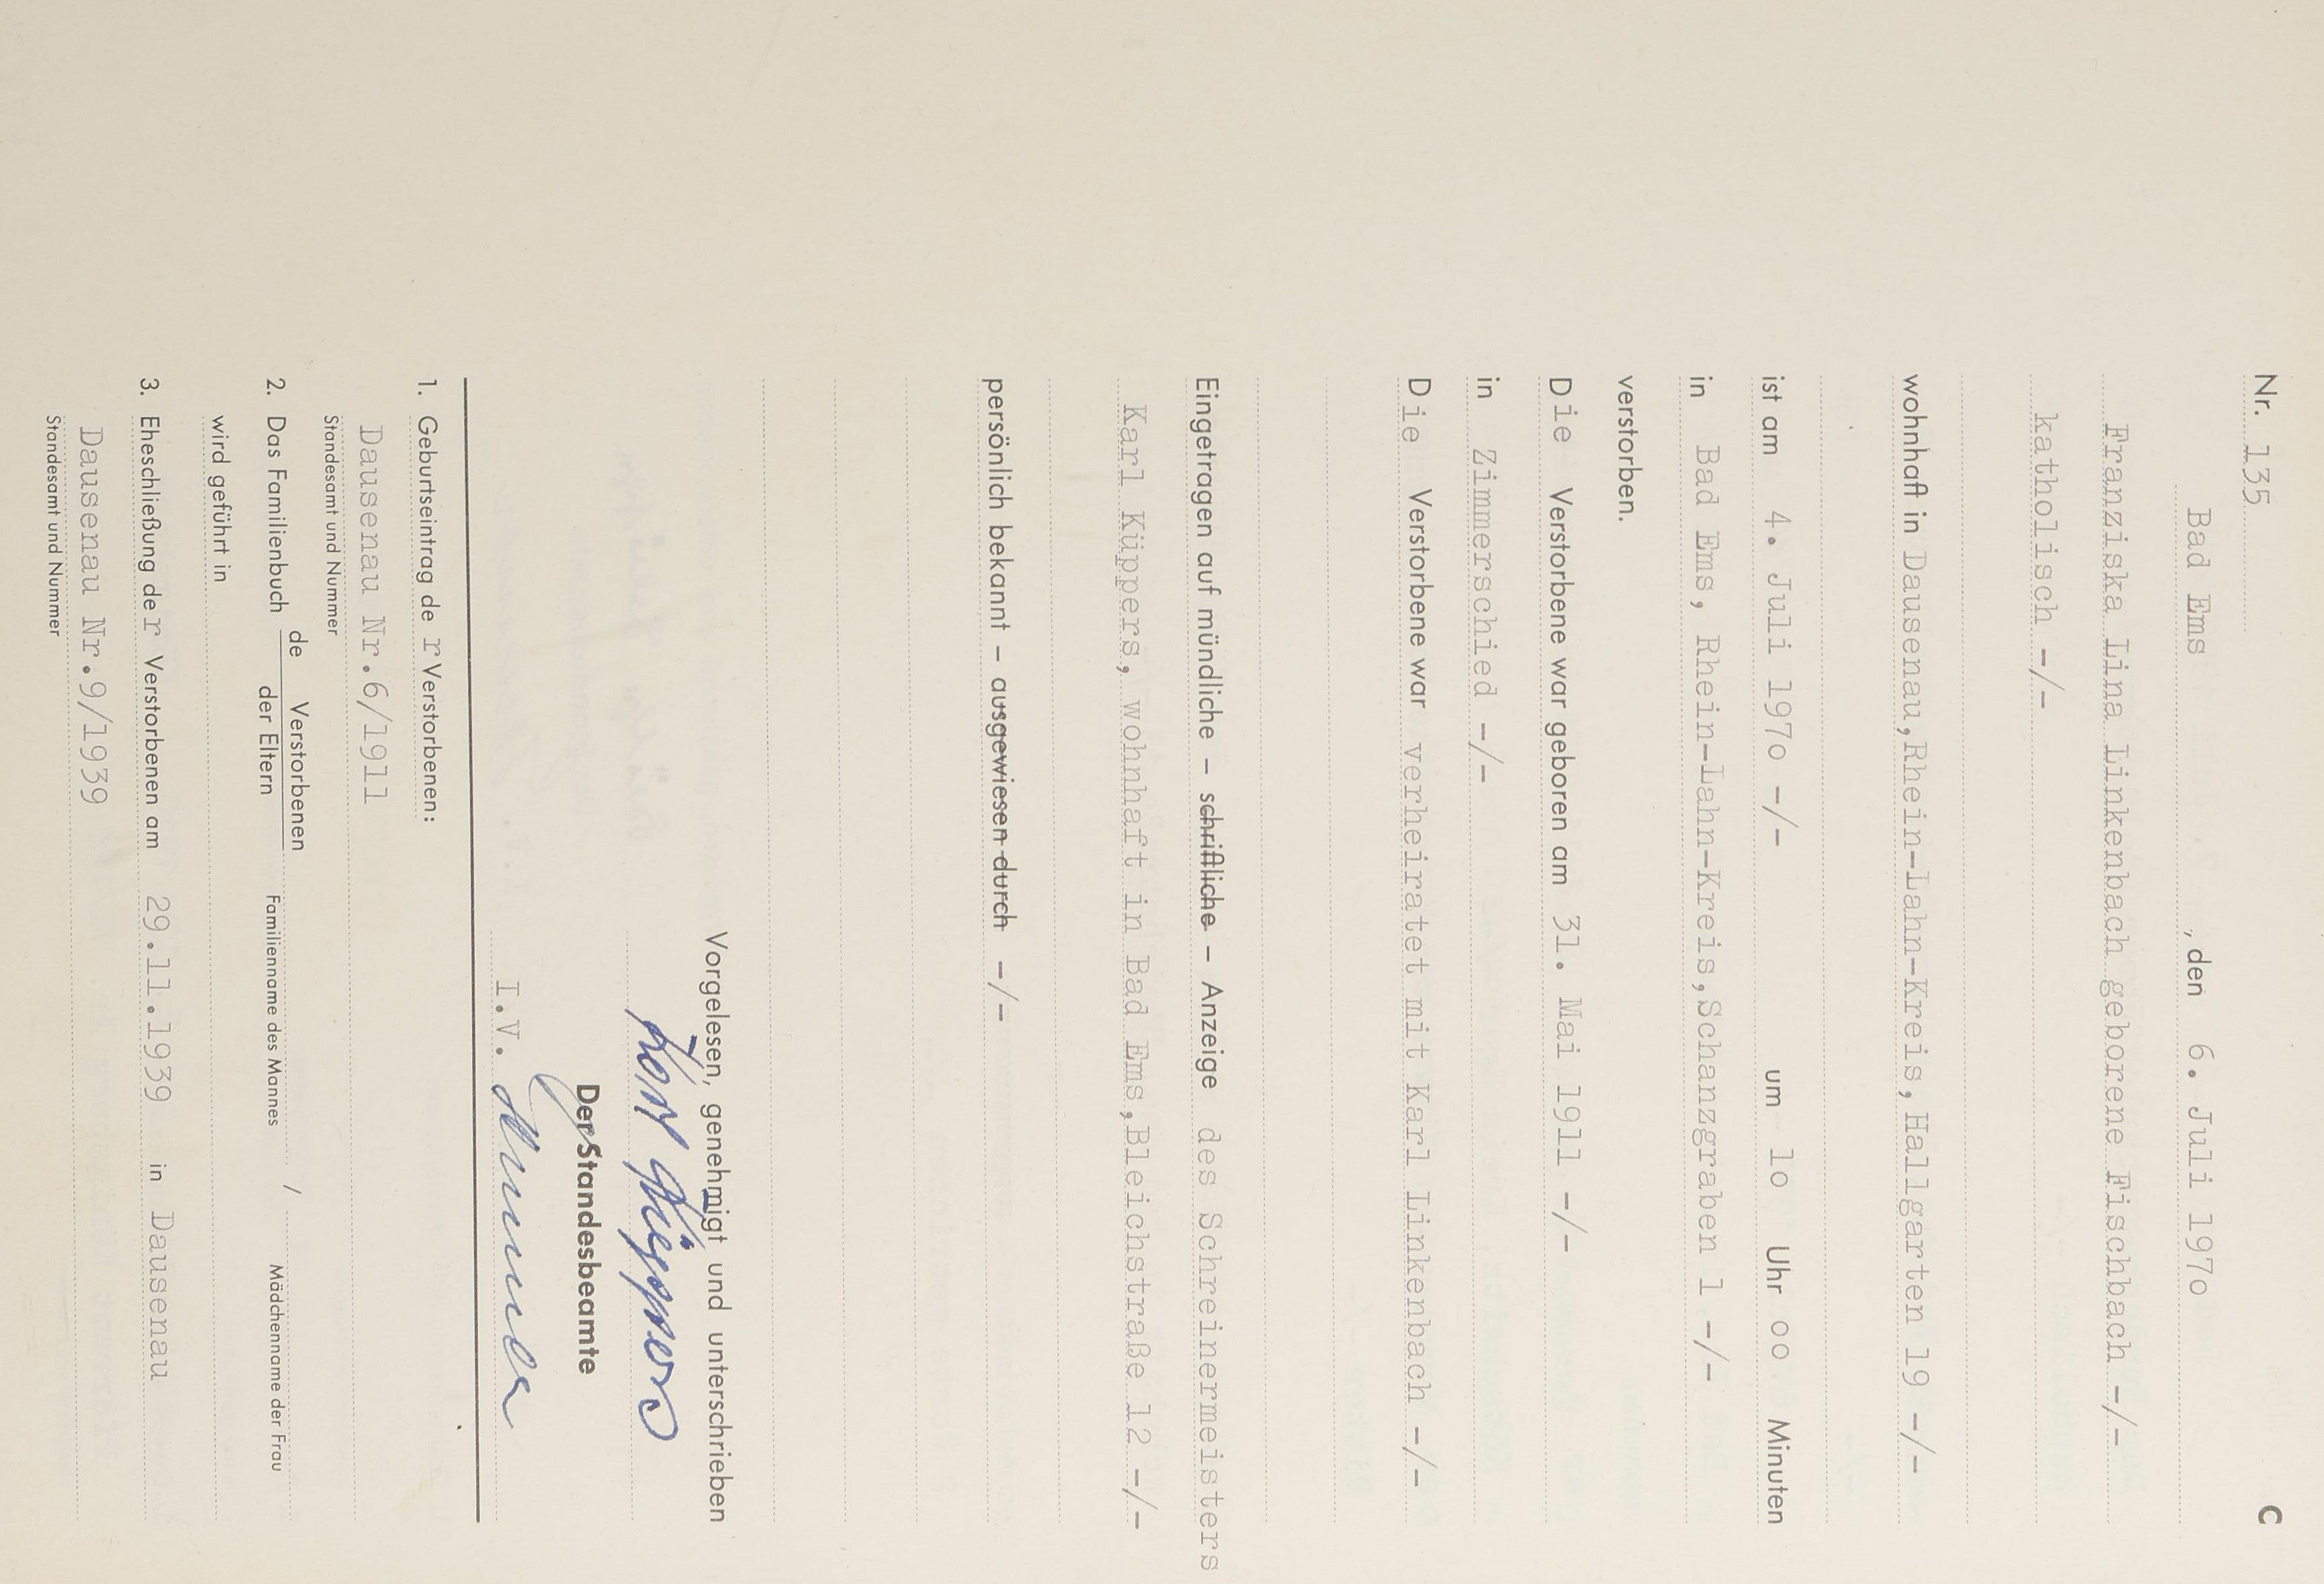 Nr. 135 C
Bad Ems , den 6. Juli 197o
Franziska Lina Linkenbach geborene Fischbach -/-
katholisch -/-
wohnhaft in Dausenau,Rhein-Lahn-Kreis,Hallgarten 19 -/-
ist am 4. Juli 197o -/- um 1o Uhr oo Minuten
in Bad Ems, Rhein-Lahn-Kreis,Schanzgraben 1 -/-
verstorben.
Die Verstorbene war geboren am 31. Mai 1911 -/-
in Zimmerschied -/-
Die Verstorbene war verheiratet mit Karl Linkenbach -/-
Eingetragen auf mündliche – schriftliche – Anzeige des Schreinermeisters
Karl Küppers, wohnhaft in Bad Ems,Bleichstraße 12 -/-
persönlich bekannt – ausgewiesen durch -/-
Vorgelesen, genehmigt und unterschrieben
Karl Küppers
Der Standesbeamte
I.V.
1. Geburtseintrag de r Verstorbenen:
Dausenau Nr.6/1911
Standesamt und Nummer
2. Das Familienbuch de Verstorbenen / der Eltern /
Familienname des Mannes Mädchenname der Frau
wird geführt in
3. Eheschließung de r Verstorbenen am 29.11.1939 in Dausenau
Dausenau Nr.9/1939
Standesamt und Nummer